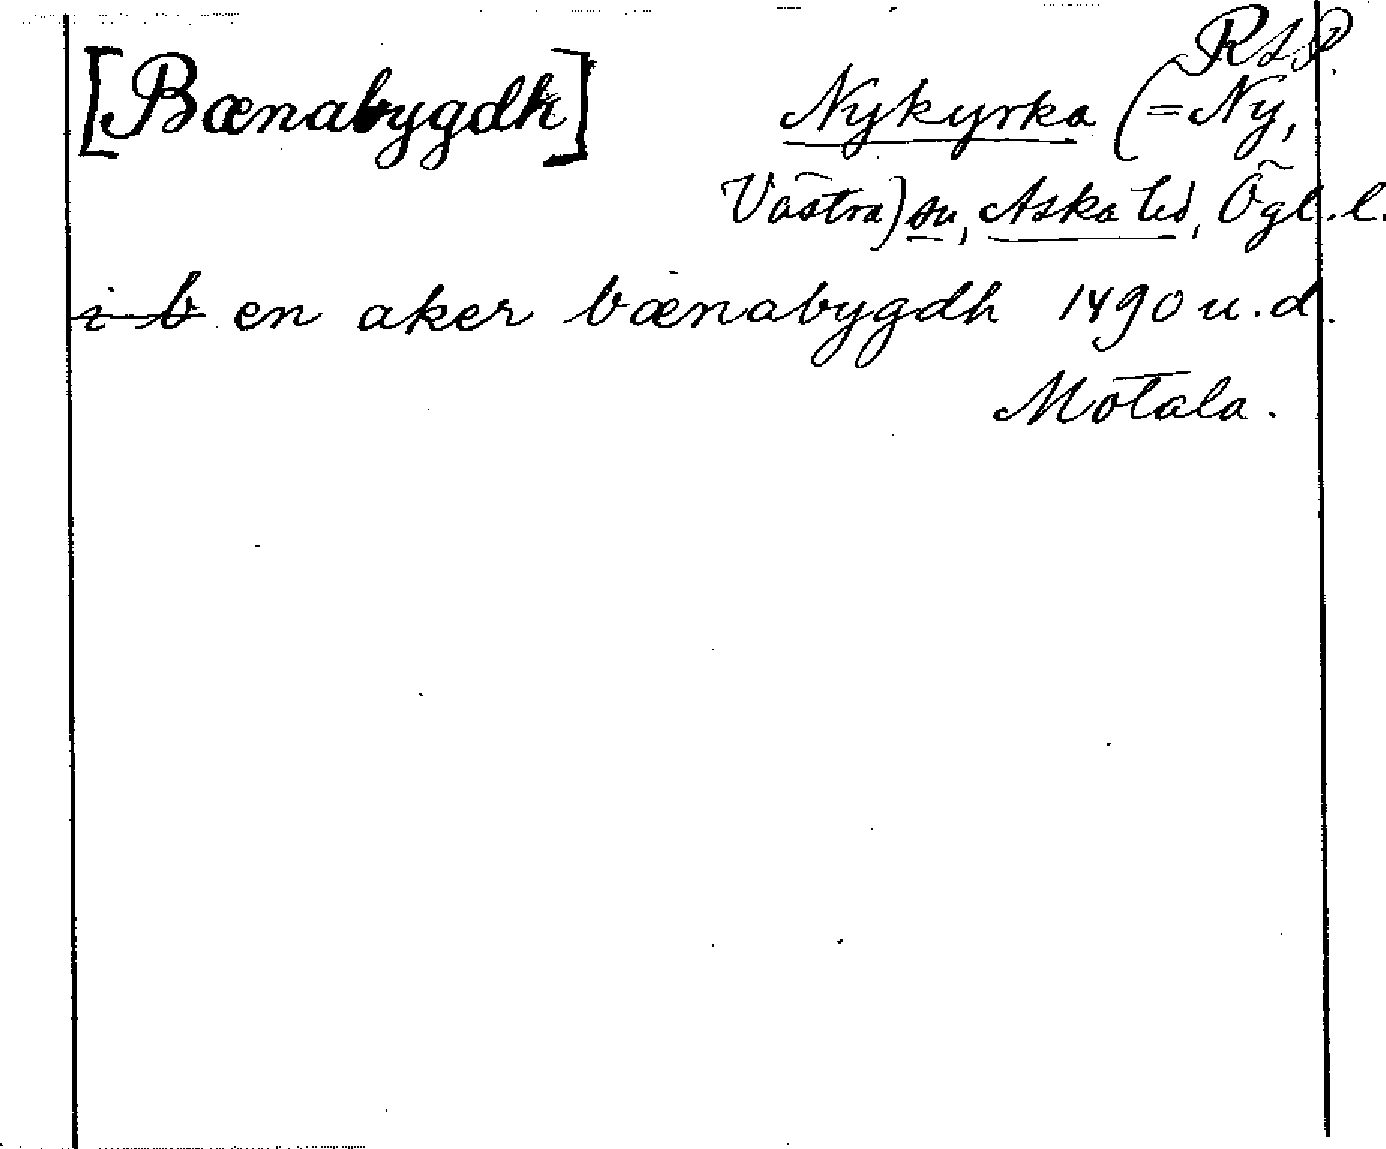 RAP.
[Bænabygdh] Nykyrka (=Ny,
Västra) sn, Aska hd, Ögl. l.
i b en aker bænabygdh 1490 u.d.
Motala.